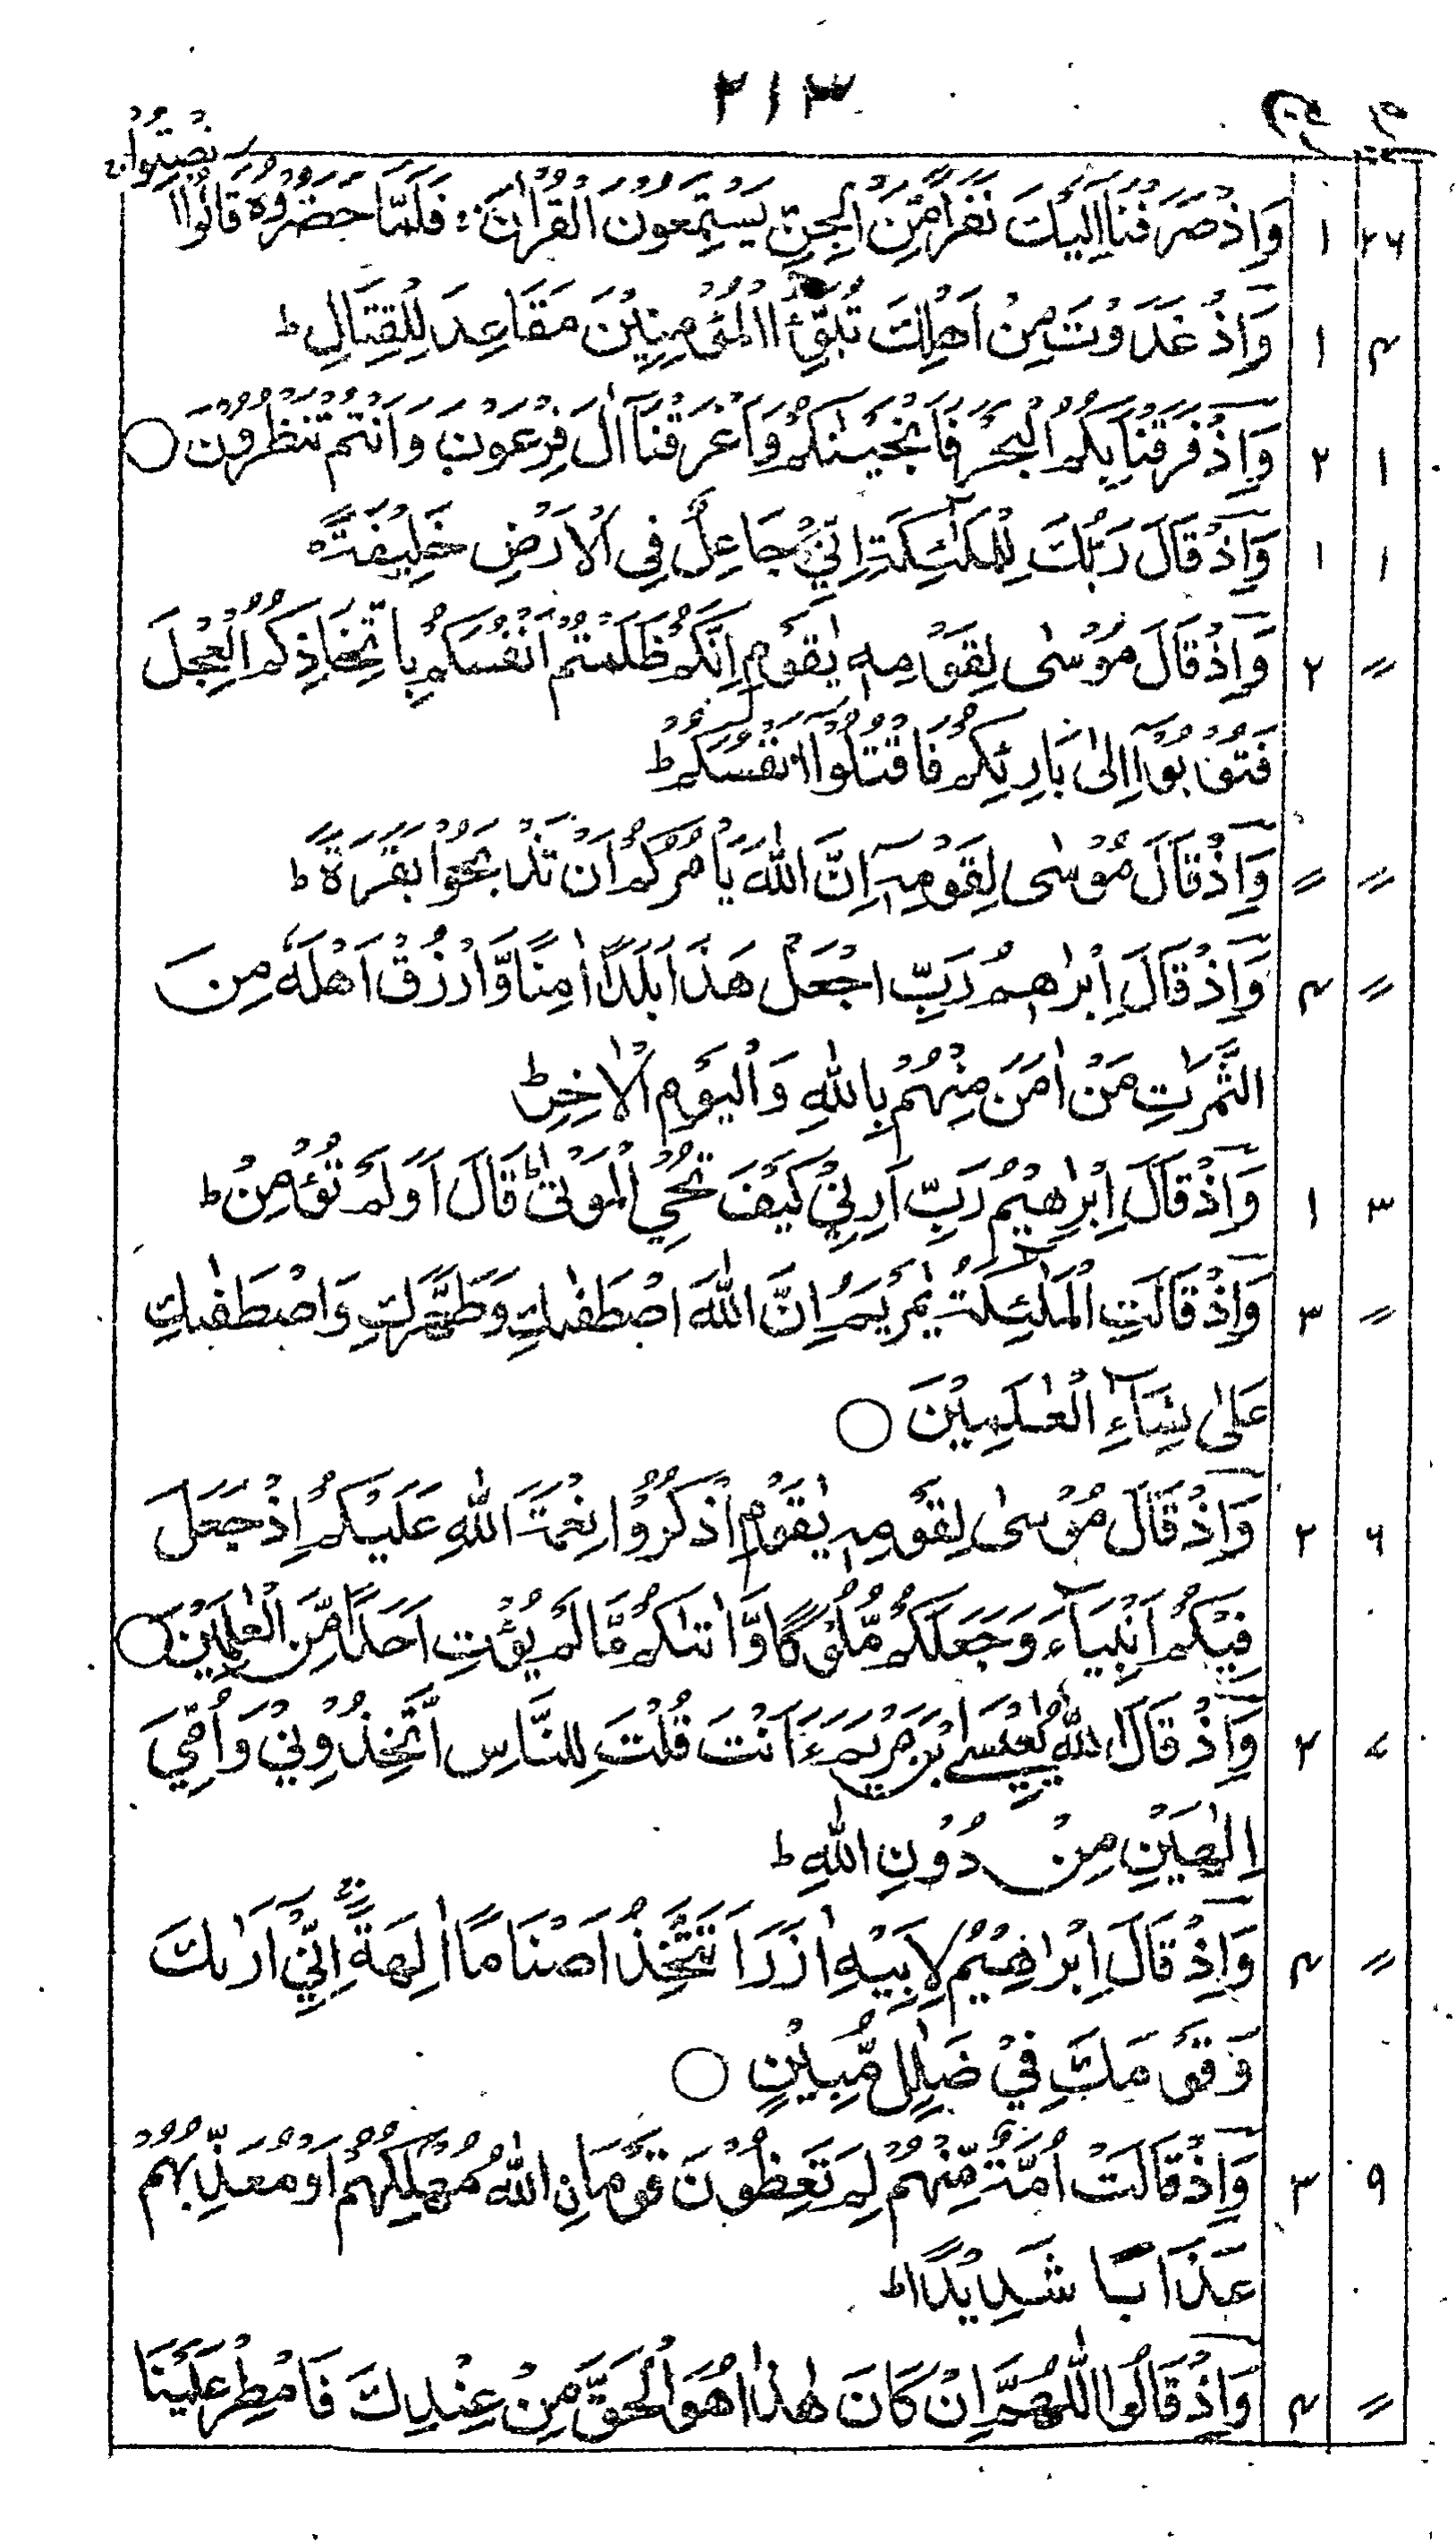 ۲۱۳
وَاِذْ صَرَفْنَا اِلَيْكَ نَفَرًا مِّنَ الْجِنِّ يَسْتَمِعُوْنَ الْقُرْاٰنَ ۚ فَلَمَّا حَضَرُوْهُ قَالُوْٓا اَنْصِتُوْا ۚ ۱ ۲۶
وَاِذْ غَدَوْتَ مِنْ اَهْلِكَ تُبَوِّئُ الْمُؤْمِنِيْنَ مَقَاعِدَ لِلْقِتَالِ ط ۱ ۴
وَاِذْ فَرَقْنَا بِكُمُ الْبَحْرَ فَاَنْجَيْنٰكُمْ وَاَغْرَقْنَآ اٰلَ فِرْعَوْنَ وَاَنْتُمْ تَنْظُرُوْنَ ○ ۲ ۱
وَاِذْ قَالَ رَبُّكَ لِلْمَلٰٓئِكَةِ اِنِّيْ جَاعِلٌ فِى الْاَرْضِ خَلِيْفَةً ۱ ۱
وَاِذْ قَالَ مُوْسٰى لِقَوْمِهٖ يٰقَوْمِ اِنَّكُمْ ظَلَمْتُمْ اَنْفُسَكُمْ بِاتِّخَاذِكُمُ الْعِجْلَ ۲ =
فَتُوْبُوْٓا اِلٰى بَارِئِكُمْ فَاقْتُلُوْٓا اَنْفُسَكُمْ ط
وَاِذْ قَالَ مُوْسٰى لِقَوْمِهٖٓ اِنَّ اللّٰهَ يَاْمُرُكُمْ اَنْ تَذْبَحُوْا بَقَرَةً ط = =
وَاِذْ قَالَ اِبْرٰهٖمُ رَبِّ اجْعَلْ هٰذَا بَلَدًا اٰمِنًا وَّارْزُقْ اَهْلَهٗ مِنَ ۴ =
الثَّمَرٰتِ مَنْ اٰمَنَ مِنْهُمْ بِاللّٰهِ وَالْيَوْمِ الْاٰخِرِ ط
وَاِذْ قَالَ اِبْرٰهِيْمُ رَبِّ اَرِنِيْ كَيْفَ تُحْيِ الْمَوْتٰى ط قَالَ اَوَلَمْ تُؤْمِنْ ط ۱ ۳
وَاِذْ قَالَتِ الْمَلٰٓئِكَةُ يٰمَرْيَمُ اِنَّ اللّٰهَ اصْطَفٰىكِ وَطَهَّرَكِ وَاصْطَفٰىكِ ۳ =
عَلٰى نِسَآءِ الْعٰلَمِيْنَ ○
وَاِذْ قَالَ مُوْسٰى لِقَوْمِهٖ يٰقَوْمِ اذْكُرُوْا نِعْمَةَ اللّٰهِ عَلَيْكُمْ اِذْ جَعَلَ ۲ ۶
فِيْكُمْ اَنْبِيَآءَ وَجَعَلَكُمْ مُّلُوْكًا وَّاٰتٰىكُمْ مَّا لَمْ يُؤْتِ اَحَدًا مِّنَ الْعٰلَمِيْنَ ○
وَاِذْ قَالَ اللّٰهُ يٰعِيْسَى ابْنَ مَرْيَمَ ءَاَنْتَ قُلْتَ لِلنَّاسِ اتَّخِذُوْنِيْ وَاُمِّيَ ۲ ۷
اِلٰهَيْنِ مِنْ دُوْنِ اللّٰهِ ط
وَاِذْ قَالَ اِبْرٰهِيْمُ لِاَبِيْهِ اٰزَرَ اَتَتَّخِذُ اَصْنَامًا اٰلِهَةً ۚ اِنِّيْٓ اَرٰىكَ ۴ =
وَقَوْمَكَ فِيْ ضَلٰلٍ مُّبِيْنٍ ○
وَاِذْ قَالَتْ اُمَّةٌ مِّنْهُمْ لِمَ تَعِظُوْنَ قَوْمًا ࣙاللّٰهُ مُهْلِكُهُمْ اَوْ مُعَذِّبُهُمْ ۳ ۹
عَذَابًا شَدِيْدًا ط
وَاِذْ قَالُوا اللّٰهُمَّ اِنْ كَانَ هٰذَا هُوَ الْحَقَّ مِنْ عِنْدِكَ فَاَمْطِرْ عَلَيْنَا ۴ =